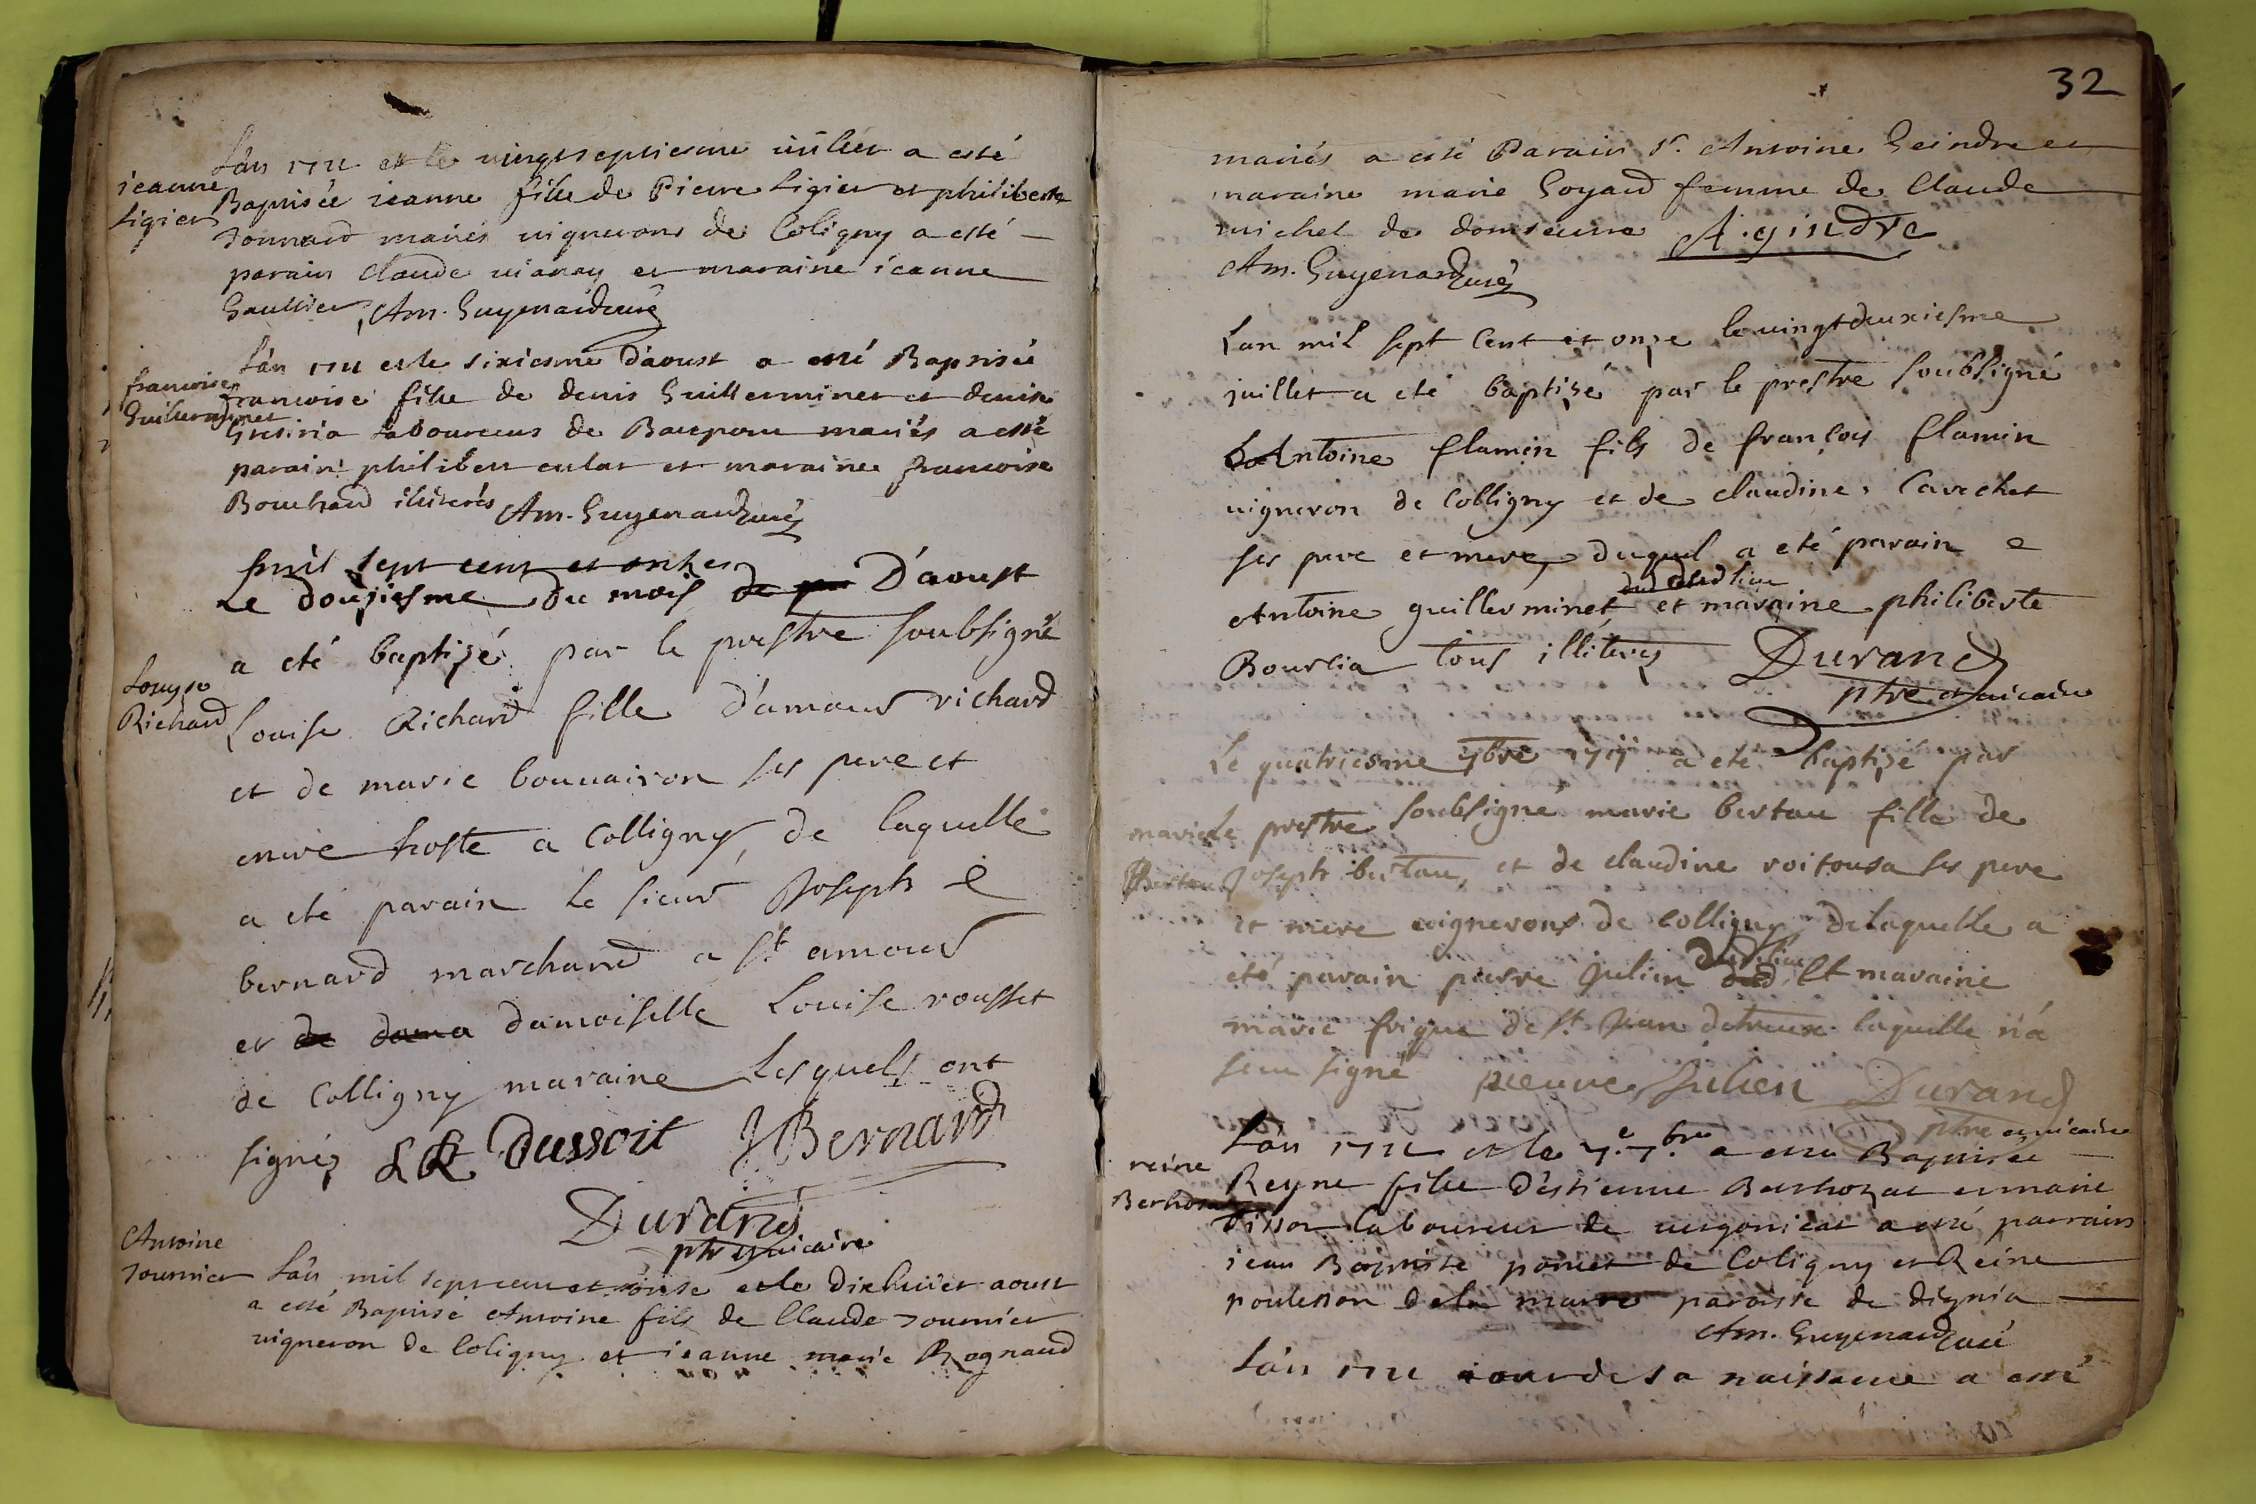 Lan 1711 et le vingtseptiesme iüillet a esté
jeanne
Ligier
Baptisée jeanne fille de Pierre Ligier et philiberte
Tonnard mariés vignerons de Coligny a esté
parain Claude vianay et maraine jeanne
Gaultier, Am. Guyenard curé
Lán 1711 et le sixiesme d'aoust a esté Baptisée
francoise
Guillerminet
francoise fille de denis Guillerminet et denise
laboureurs de mariés a esté
parain philibert et maraine francoise
Bouchard illiterés Am. Guyenard curé
mil sept cent et onze
Le douziesme du mois D'aoust
a eté baptizé par le prestre soubsigné
Louyse
Richard
Louise Richard fille d'amour richard
et de marie bouvairon ses pere et
mere hoste a Colligny, de laquelle
a eté parain le sieur Joseph
bernard marchand a St. amour
et damoiselle Louise rousset
de Colligny maraine Lesquels ont
signéz Dussoit JBernard
Durand
ptre vicaire
Antoine
Tournier
Lán mil sept cent et onse et le dixhuict aoust
a esté Baptisé Antoine fils de Claude Tournier
vigneron de Coligny et jeanne marie Rognaud
32
mariés a esté Parain Sr. Antoine Geindre et
maraine marie Goyard femme de Claude
michel de domseurre A. gindre
Am. Guyenard curé
Lan mil sept Cent et onze le vingtdeuxiesme
juillet a eté baptizé par le prestre soubsigné
Antoine flamin fils de françois flamin
vigneron de Colligny et de claudine Cavechet
ses pere et mere, duquel a eté parain
dud lieu
Antoine guillerminet et maraine philiberte
Bourcia tous illiterez Durand
ptre vicaire
Le quatriesme 7bre 1711 a eté baptizé par
marie
Bertau
Le prestre soubsigné marie bertau fille de
Joseph bertau, et de claudine voitousa ses pere
et mere vignerons de Colligny Delaquelle a
dud lieu
eté parain pierre Julien Et maraine
marie frique de St. Jean detreux laquelle n'a
seu signé pieuve Julien Durand
ptre vicaire
Lán 1711 et le 7.e 7.bre a esté Baptisée
reine
Reyne fille D'estienne Berthozat et marie
laboureur de a esté parrain
jean Baptiste poncet de Coligny et Reine
dela marre paroisse de dignia
Am. Guyenard curé
Lán 1711 jour de sa naissance a esté